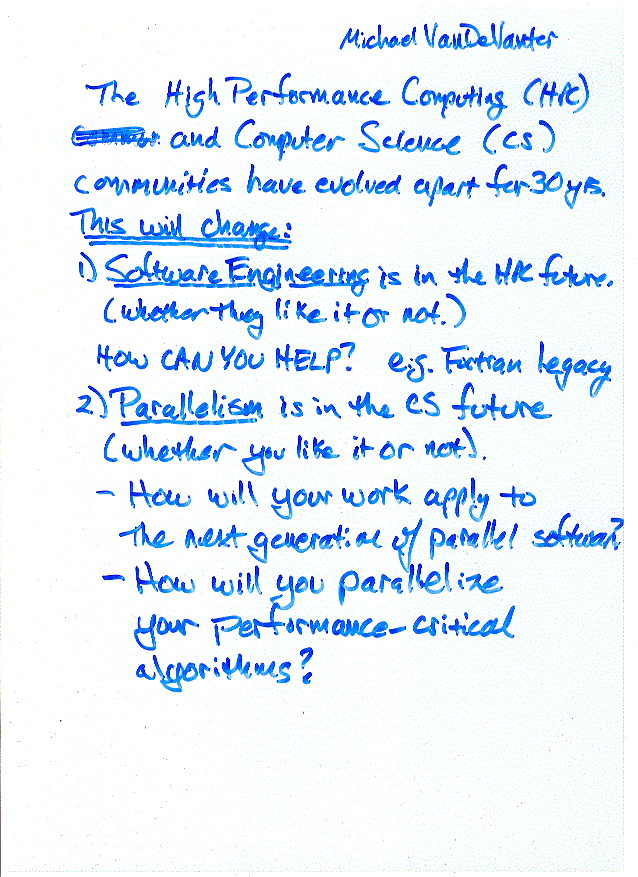 Michael VanDeVanter
The High Performance Computing (HPC)
and Computer Science (CS)
communities have evolved apart for 30 yrs.
This will change:
1) Software Engineering is in the HPC future.
(whether they like it or not.)
HOW CAN YOU HELP? e.g. Fortran Legacy
2) Parallelism is in the CS future
(whether you like it or not).
- How will your work apply to
the next generation of parallel software?
- How will you parallelize
your performance-critical
algorithms?